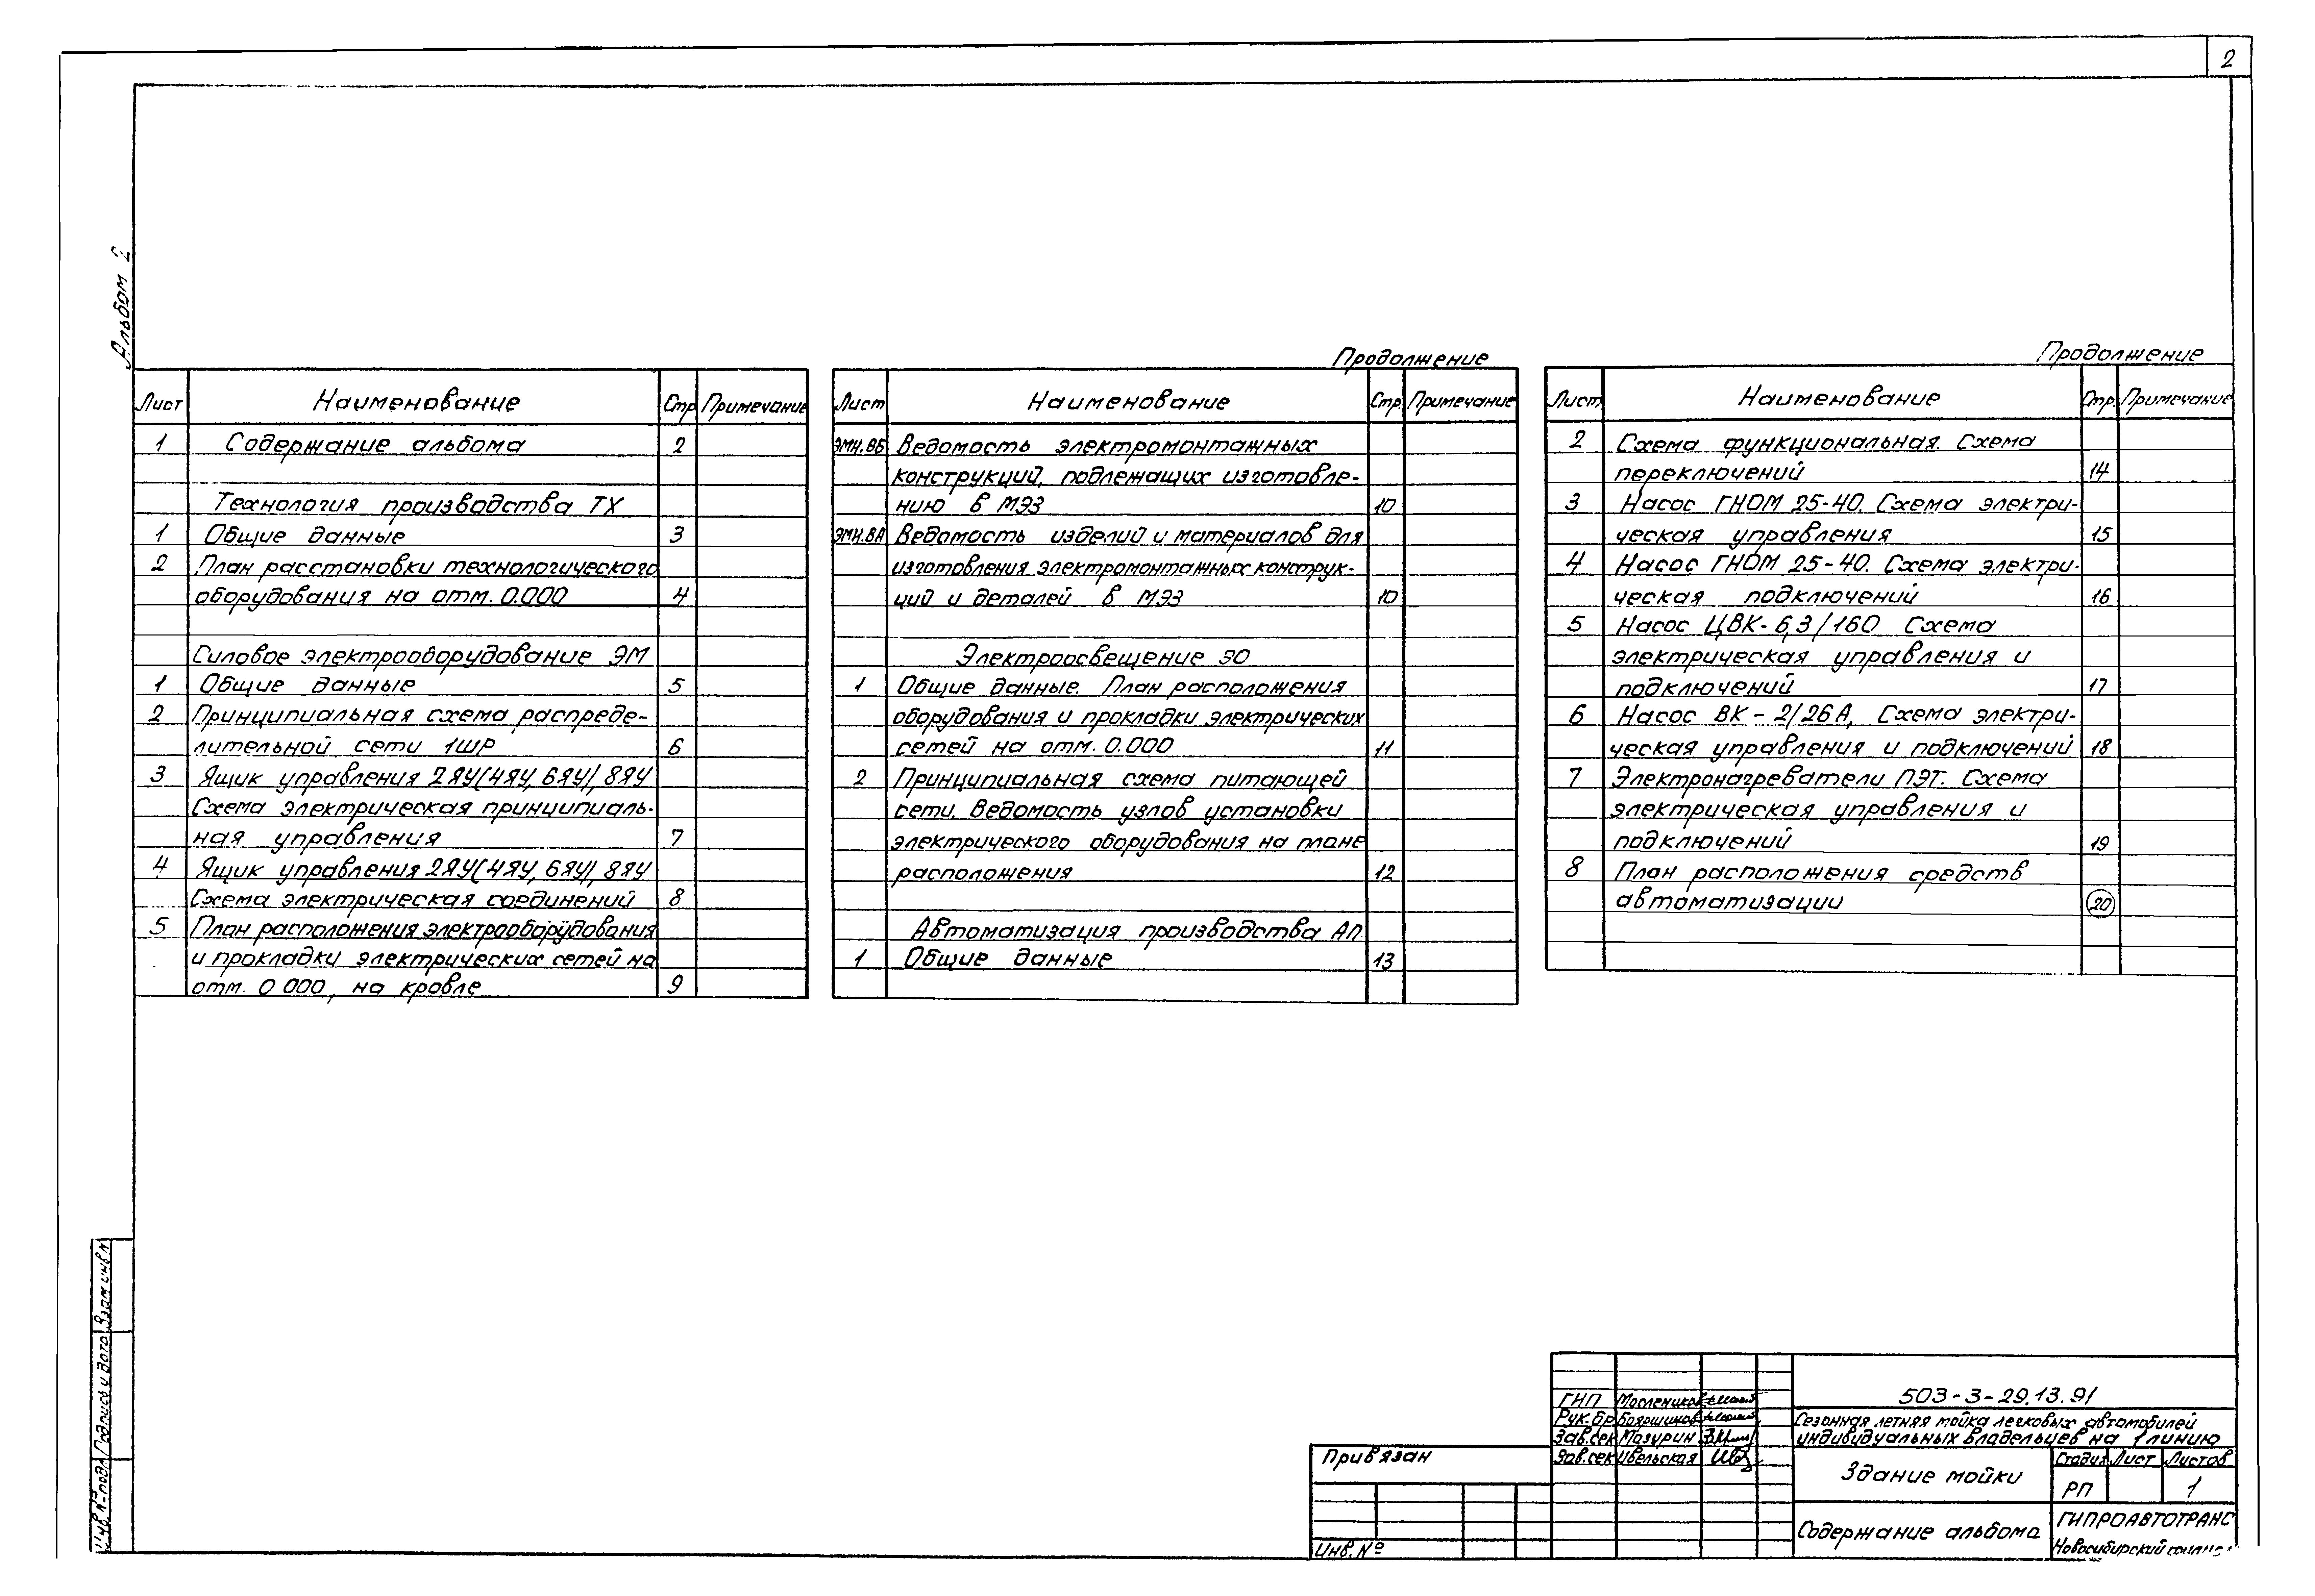 2
Альбом 2
Лист Наименование Стр Примечание
1 Содержание альбома 2
Технология производства ТХ
1 Общие данные 3
2 План расстановки технологического
оборудования на отм. 0.000 4
Силовое электрооборудование ЭМ
1 Общие данные 5
2 Принципиальная схема распреде-
лительной сети 1ШР 6
3 Ящик управления 2ЯУ(4ЯУ, 6ЯУ), 8ЯУ
Схема электрическая принципиаль-
ная управления 7
4 Ящик управления 2ЯУ(4ЯУ, 6ЯУ), 8ЯУ
Схема электрическая соединений 8
5 План расположения электрооборудования
и прокладки электрических сетей на
отм. 0 000, на кровле 9
Продолжение
Лист Наименование Стр. Примечание
ЭМН.ВБ Ведомость электромонтажных
конструкций, подлежащих изготовле-
нию в МЭЗ 10
ЭМН.ВА Ведомость изделий и материалов для
изготовления электромонтажных конструк-
ций и деталей в МЭЗ 10
Электроосвещение ЭО
1 Общие данные. План расположения
оборудования и прокладки электрических
сетей на отм. 0.000 11
2 Принципиальная схема питающей
сети. Ведомость узлов установки
электрического оборудования на плане
расположения 12
Автоматизация производства АП.
1 Общие данные 13
Продолжение
Лист Наименование Стр. Примечание
2 Схема функциональная. Схема
переключений 14
3 Насос ГНОМ 25-40. Схема электри-
ческая управления 15
4 Насос ГНОМ 25-40. Схема электри-
ческая подключений 16
5 Насос ЦВК-6,3/160 Схема
электрическая управления и
подключений 17
6 Насос ВК-2/26А, Схема электри-
ческая управления и подключений 18
7 Электронагреватели ПЭТ. Схема
электрическая управления и
подключений 19
8 План расположения средств
автоматизации 20
Взам инв.N
Подпись и дата
Инв.N-подл
Привязан
Инв.№
ГИП Масленников
Рук.бр Бояршинов
Зав.сек Мазурин
Зав.сек Ивельская
503-3-29.13.91
Сезонная летняя мойка легковых автомобилей
индивидуальных владельцев на 1 линию
Здание мойки
Стадия Лист Листов
РП 1
Содержание альбома
ГИПРОАВТОТРАНС
Новосибирский филиал